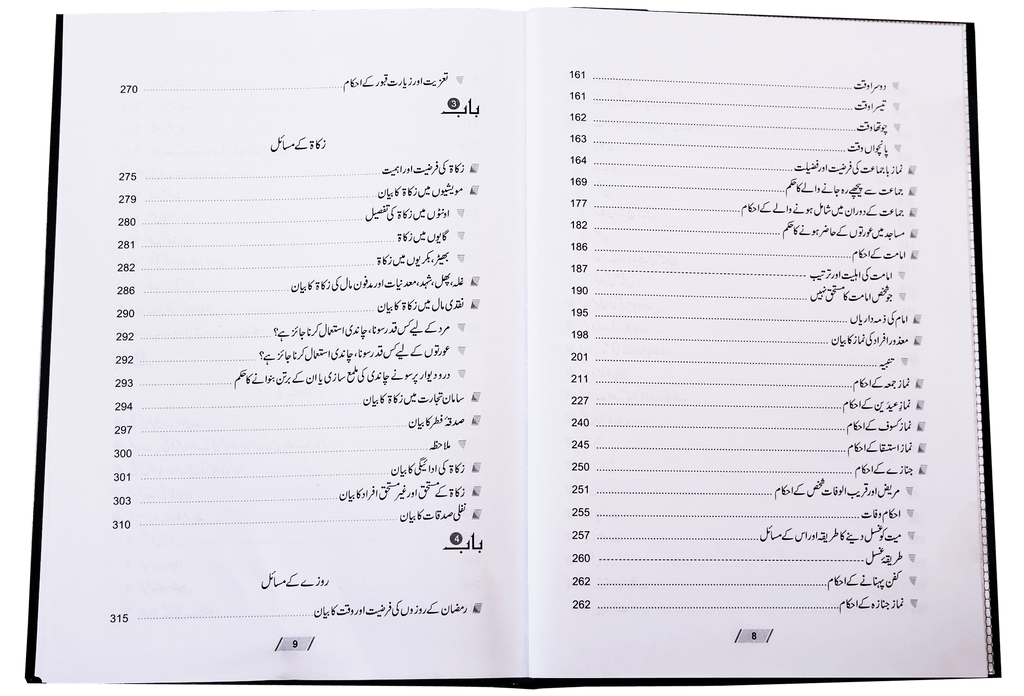 دوسرا وقت ........ 161
تیسرا وقت ........ 161
چوتھا وقت ........ 162
پانچواں وقت ........ 163
نماز باجماعت کی فرضیت اور فضیلت ........ 164
جماعت سے پیچھے رہ جانے والے کا حکم ........ 169
جماعت کے دوران میں شامل ہونے والے کے احکام ........ 177
مساجد میں عورتوں کے حاضر ہونے کا حکم ........ 182
امامت کے احکام ........ 186
امامت کی اہلیت اور ترتیب ........ 187
جو شخص امامت کا مستحق نہیں ........ 190
امام کی ذمہ داریاں ........ 195
معذور افراد کی نماز کا بیان ........ 198
تنبیہ ........ 201
نماز جمعہ کے احکام ........ 211
نماز عیدین کے احکام ........ 227
نماز کسوف کے احکام ........ 240
نماز استسقا کے احکام ........ 245
جنازے کے احکام ........ 250
مریض اور قریب الوفات شخص کے احکام ........ 251
احکام وفات ........ 255
میت کو غسل دینے کا طریقہ اور اس کے مسائل ........ 257
طریقۂ غسل ........ 260
کفن پہنانے کے احکام ........ 262
نماز جنازہ کے احکام ........ 262
8
تعزیت اور زیارت قبور کے احکام ........ 270
باب 3
زکاۃ کے مسائل
زکاۃ کی فرضیت اور اہمیت ........ 275
مویشیوں میں زکاۃ کا بیان ........ 279
اونٹوں میں زکاۃ کی تفصیل ........ 280
گایوں میں زکاۃ ........ 281
بھیڑ، بکریوں میں زکاۃ ........ 282
غلہ، پھل، شہد، معدنیات اور مدفون مال کی زکاۃ کا بیان ........ 286
نقدی مال میں زکاۃ کا بیان ........ 290
مرد کے لیے کس قدر سونا، چاندی استعمال کرنا جائز ہے؟ ........ 292
عورتوں کے لیے کس قدر سونا، چاندی استعمال کرنا جائز ہے؟ ........ 292
درو دیوار پر سونے چاندی کی ملمع سازی یا ان کے برتن بنوانے کا حکم ........ 293
سامان تجارت میں زکاۃ کا بیان ........ 294
صدقۂ فطر کا بیان ........ 297
ملاحظہ ........ 300
زکاۃ کی ادائیگی کا بیان ........ 301
زکاۃ کے مستحق اور غیر مستحق افراد کا بیان ........ 303
نفلی صدقات کا بیان ........ 310
باب 4
روزے کے مسائل
رمضان کے روزوں کی فرضیت اور وقت کا بیان ........ 315
9